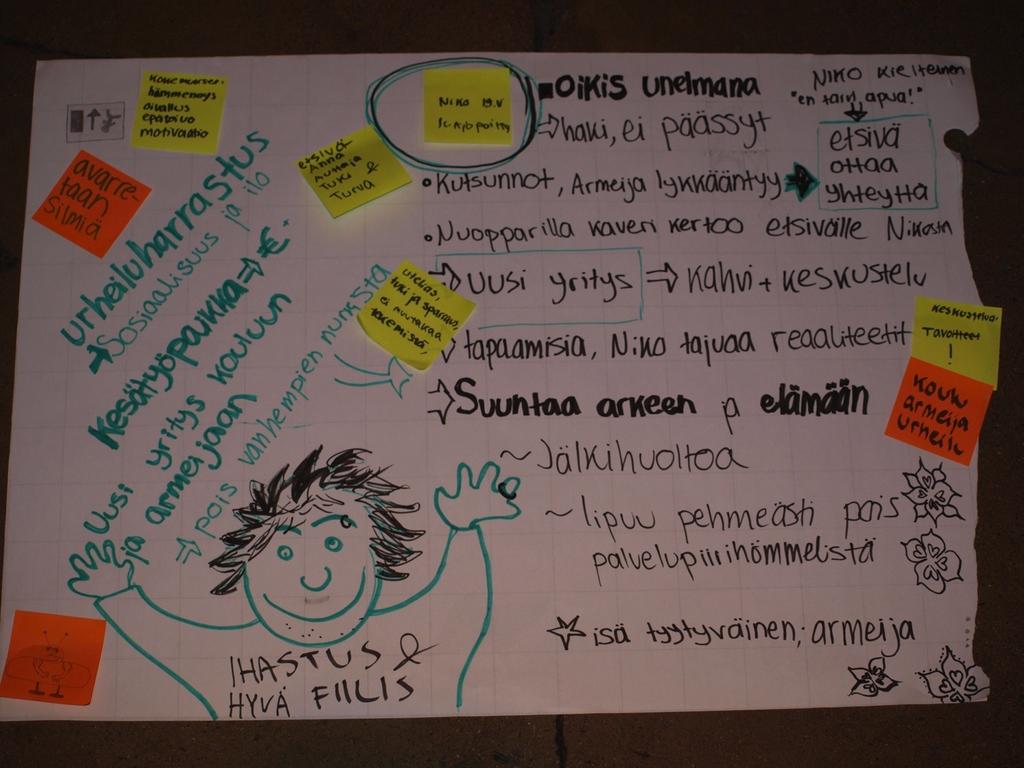 hämmennys
oivallus
epätoivo
motivaatio
avarre-
taan
silmiä
urheiluharrastus
→ Sosiaalisuus ja ilo
Kesätyöpaikka ⇒ €.
Uusi yritys kouluun
ja armeijaan
⇒ pois vanhempien nurkista
etsivä
Anna
Tuki &
Turva
Niko 19.v
utelias,
tuki ja sparraus,
ei nuutakaa
tekemistä,
OIKIS unelmana
⇒ haki, ei päässyt
• Kutsunnot, Armeija lykkääntyy →
NIKO Kielteinen
"en tarvi apua!"
etsivä
ottaa
yhteyttä
• Nuopparilla kaveri kertoo etsivälle Nikosta
⇒ uusi yritys ⇒ kahvi + keskustelu
tapaamisia, Niko tajuaa reaaliteetit
Keskustelua
Tavoitteet
!
⇒ Suuntaa arkeen ja elämään
Koulu
armeija
urheilu
~ Jälkihuoltoa
~ lipuu pehmeästi pois
palvelupiirihömmelistä
isä tyytyväinen; armeija
IHASTUS &
HYVÄ FIILIS